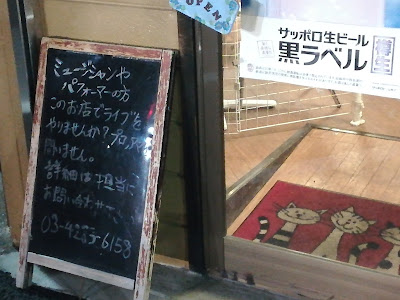 OPEN
サッポロ生ビール
黒ラベル
ミュージシャンや
パフォーマーの方
このお店でライブを
やりませんか?プロアマ
問いません。
詳細は担当に
お問い合わせ